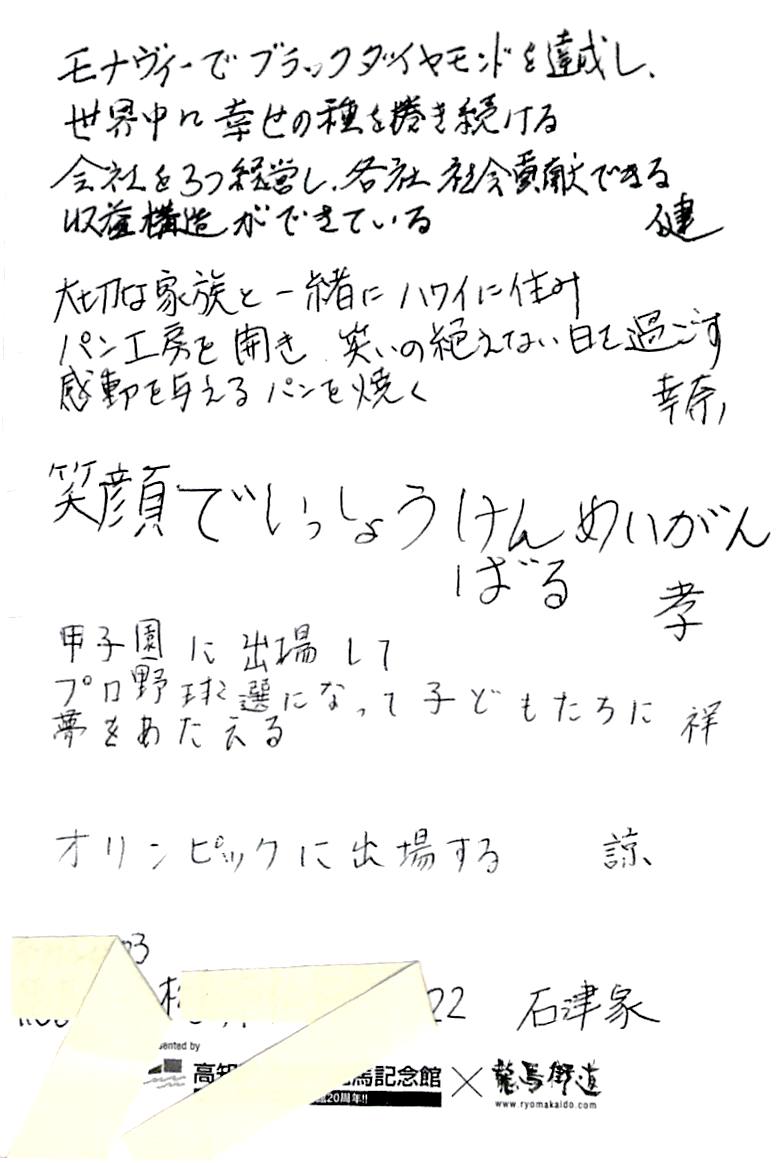 モナヴィーでブラックダイヤモンドを達成し、
世界中に幸せの種を捲き続ける
会社を3つ経営し、各社 社会貢献できる
収益構造ができている 健
大切な家族と一緒にハワイに住み
パン工房を開き 笑いの絶えない日を過ごす
感動を与えるパンを焼く 幸奈
笑顔でいっしょうけんめいがん
ばる 孝
甲子園に出場して
プロ野球選になって子どもたちに 祥
夢をあたえる
オリンピックに出場する 諒
03
22 石津家
ented by
高知 馬記念館 × 龍馬街道
館20周年!! www.ryomakaido.com